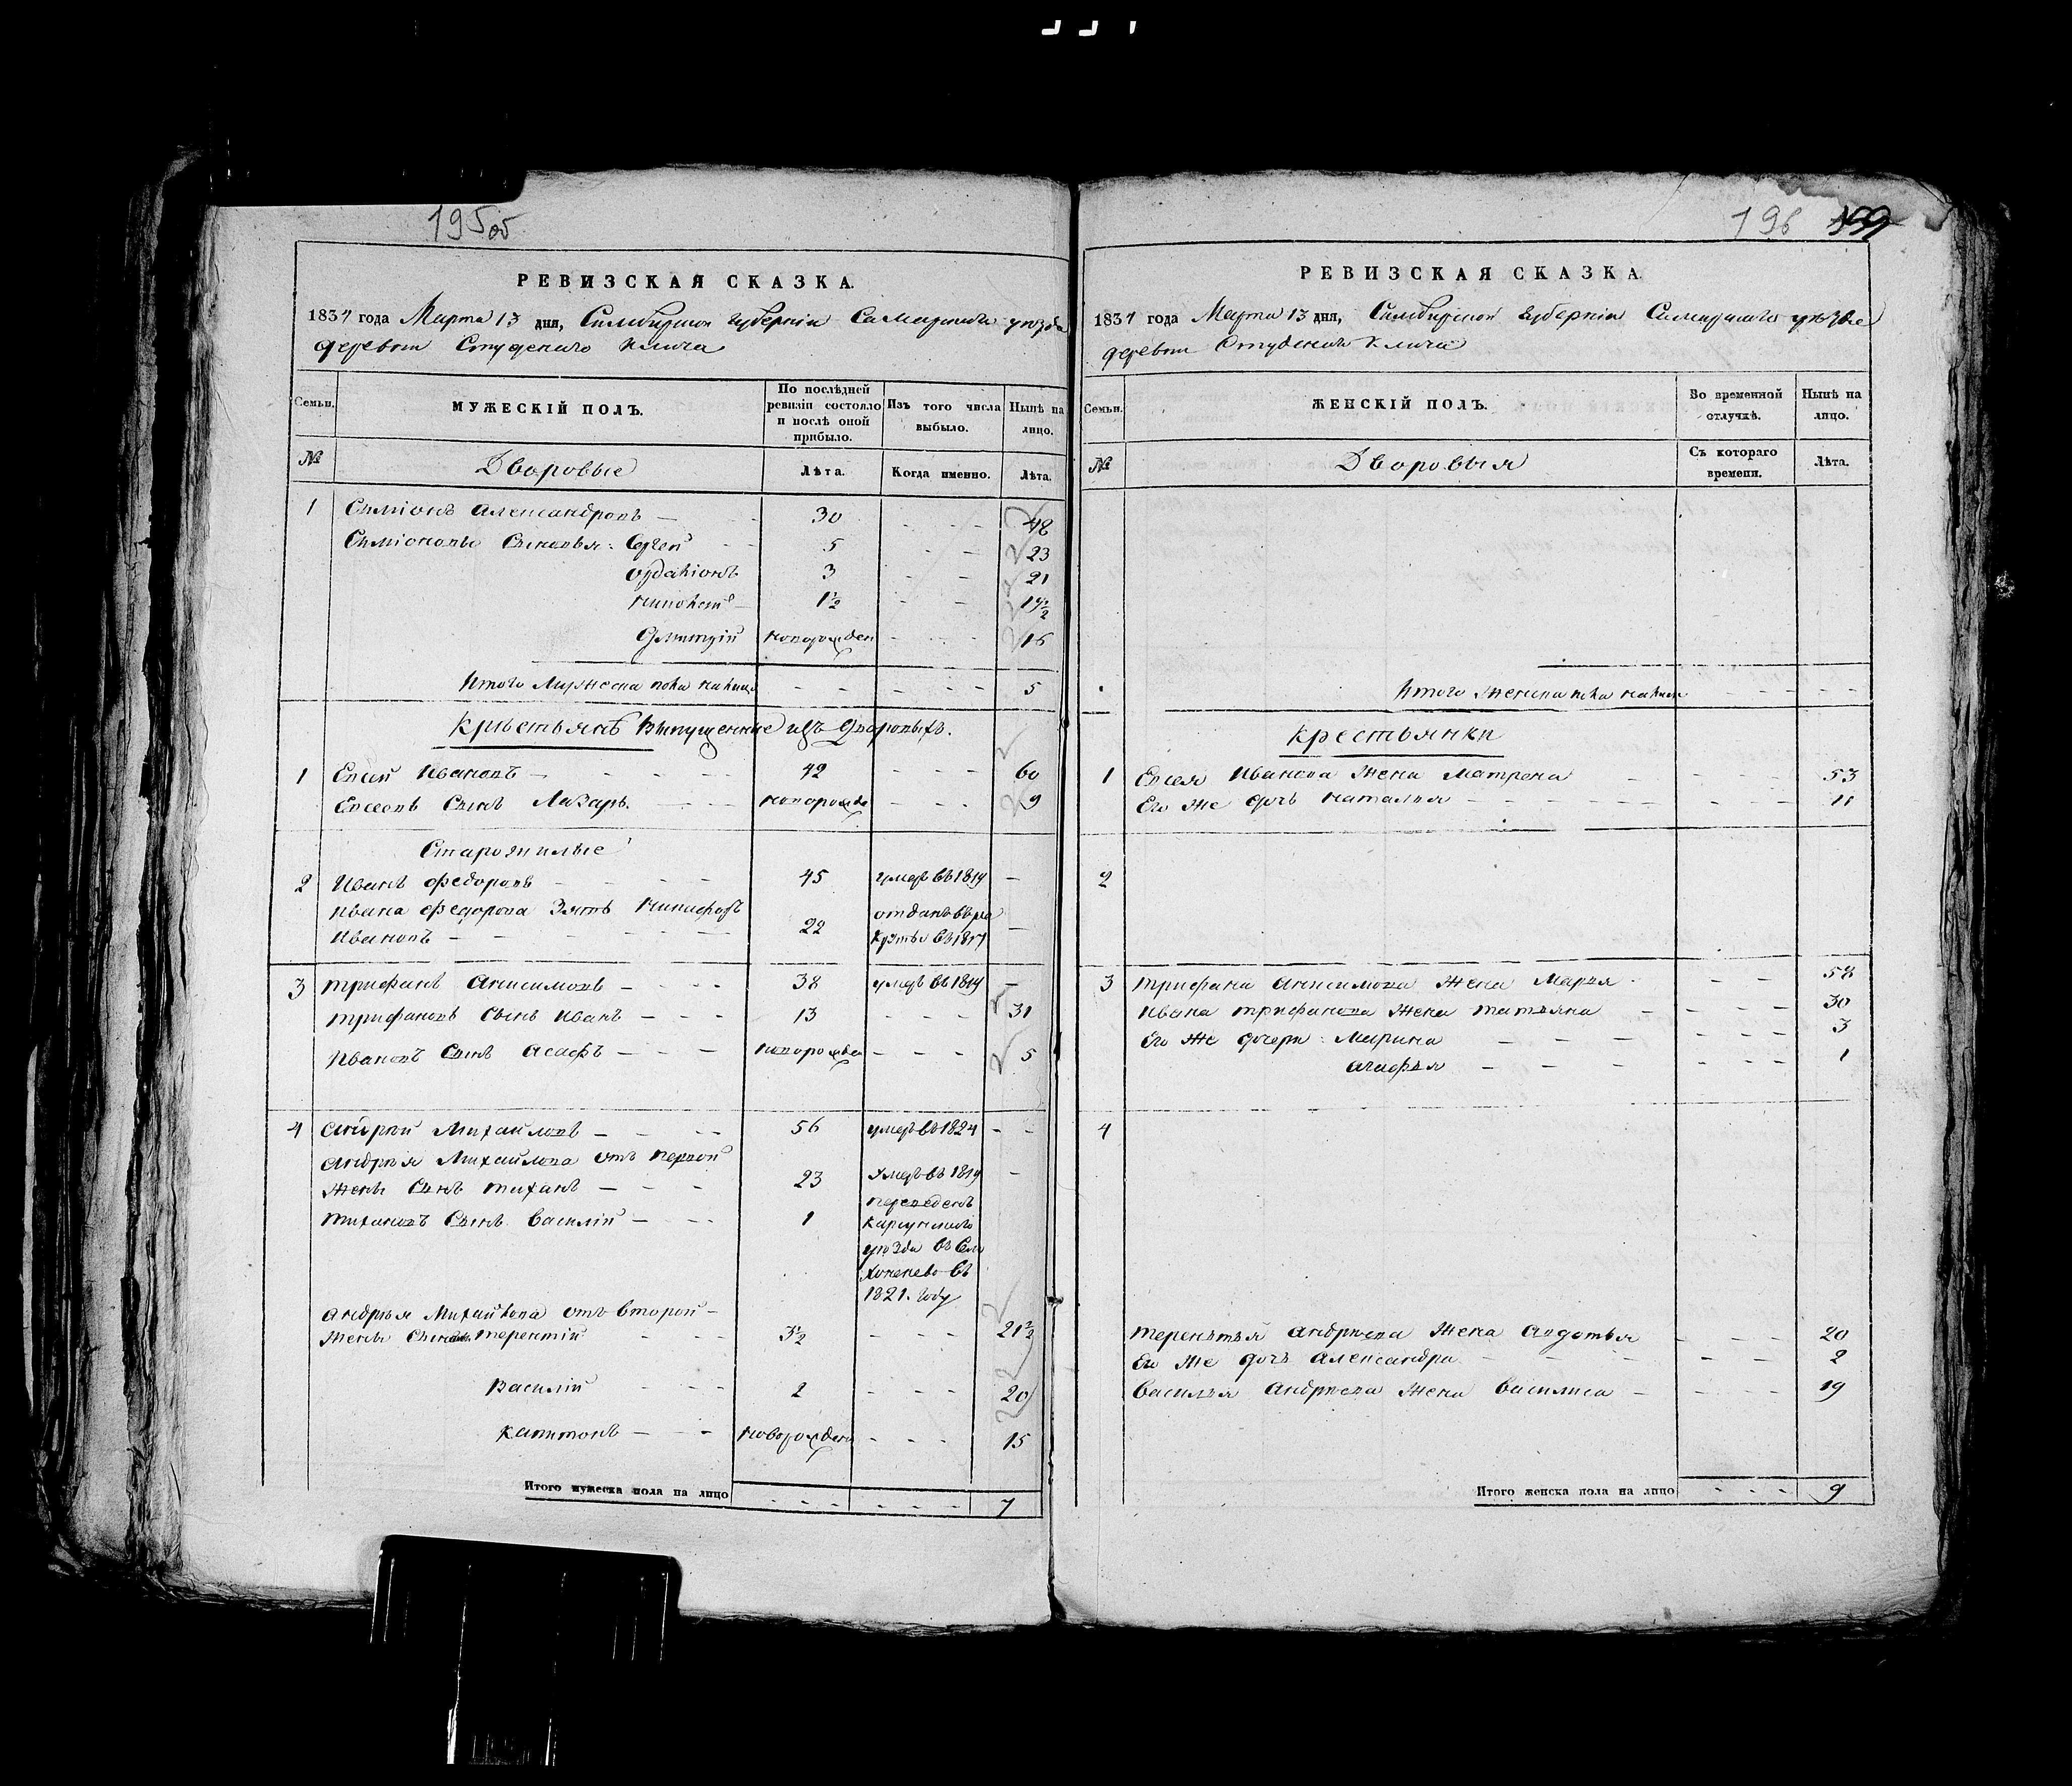 195об
РЕВИЗСКАЯ СКАЗКА.
1834 года Марта 13 дня, Симбирской губерніи Самарскаго уѣзда
деревни Студенаго Ключа
Семьи.
МУЖЕСКІЙ ПОЛЪ.
По послѣдней ревизіи состояло и послѣ оной прибыло.
Изъ того числа выбыло.
Нынѣ на лицо.
№
Дворовые
Лѣта.
Когда именно.
Лѣта.
1 Симіонъ Александровъ — 30 - - - 48
Симіоновы Сыновья: Сергей - - 5 - - 23
3 - - 21
1½ - -
Дмитрій новорожден - - - 16
Итого Мужеска пола налицо - - - - - 5
Крестьянѣ выпущенные изъ Дворовыхъ.
1 Евсей Ивановъ — - - - 42 - - - 60
Евсеевъ Сынъ Лазарь. - - - новорожде - - - 9
Старожилые
2 Иванъ Федоровъ - - - - 45 умеръ въ 1819 —
Ивана Федорова Зять Никифоръ отданъ въ ре
Ивановъ — - - - - 22 круты въ 1817 —
3 Трифанъ Анисимовъ — - - - 38 умеръ въ 1819 —
Трифановъ Сынъ Иванъ — - - 13 - - - 31
Ивановъ Сынъ Асафъ — - - новорожден - - - 5
4 Андрей Михайловъ — - - - 56 умеръ въ 1824 - -
Андрея Михайлова отъ первой
Жены Сынъ Тиханъ — - - 23 Умеръ въ 1819 —
переведенъ
Тихановъ Сынъ Василій — - - 1 Карсунскаго
уѣзда въ Село
въ
1821. году
Андрея Михайлова отъ второй —
Жены Терентій - - - 3½ - - - 21½
Василій - - - 2 - - - 20
Капитонъ — - - новорожден - - - 15
Итого мужеска пола на лицо - - - - - - 7
196
РЕВИЗСКАЯ СКАЗКА
1834 года Марта 13 дня, Симбирской губерніи Самарскаго уѣзда
деревни Студенаго Ключа
Семьи.
ЖЕНСКІЙ ПОЛЪ.
Во временной отлучкѣ.
Нынѣ на лицо.
№
Дворовыя
Съ котораго времени.
Лѣта.
Итого Женска пола налицо - - - - -
Крестьянки
1 Евсея Иванова Жена Матрена - - - - 53
Его Же дочь Наталья - - - - - - 11
2
3 Трифана Анисимова Жена Марья - - - 58
Ивана Трифанова Жена Татьяна - - - - 30
Его Же дочери: Марина - - - - - - 3
Агафья - - - - - - 1
4
Терентья Андреева Жена Авдотья - - - 20
Его Же дочь Александра - - - - - - 2
Василья Андреева Жена Василиса - - - - 19
Итого женска пола на лицо - - - 9